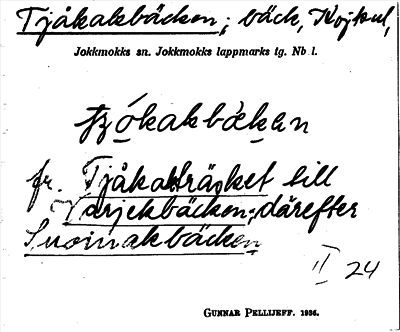 Tjåkakbäcken; bäck,
Jokkmokks sn. Jokkmokks lappmarks tg. Nb l.
fr. Tjåkakträsket till
Varjekbäcken; därefter
Suoinakbäcken
II 24
GUNNAR PELLIJEFF. 1936.